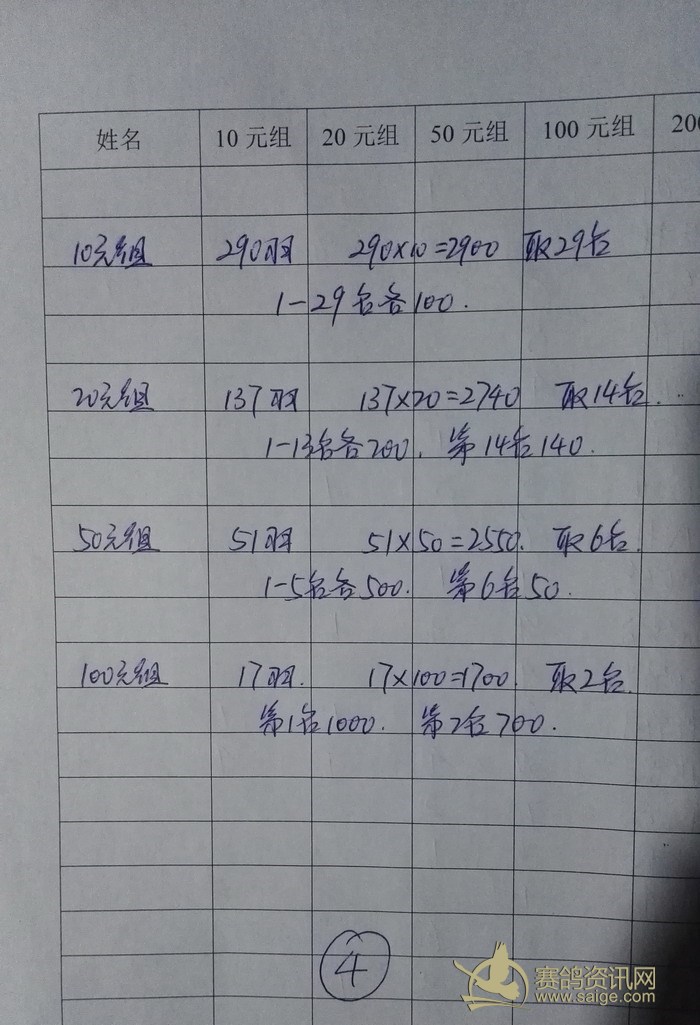 姓名 10 元组 20 元组 50 元组 100 元组 200
10元组 290羽 290×10=2900 取29名
1-29名各100.
20元组 137羽 137×20=2740 取14名.
1-13名各200. 第14名140.
50元组 51羽 51×50=2550. 取6名.
1-5名各500. 第6名50.
100元组 17羽. 17×100=1700. 取2名.
第1名1000. 第2名700.
4
赛鸽资讯网
www.saige.com